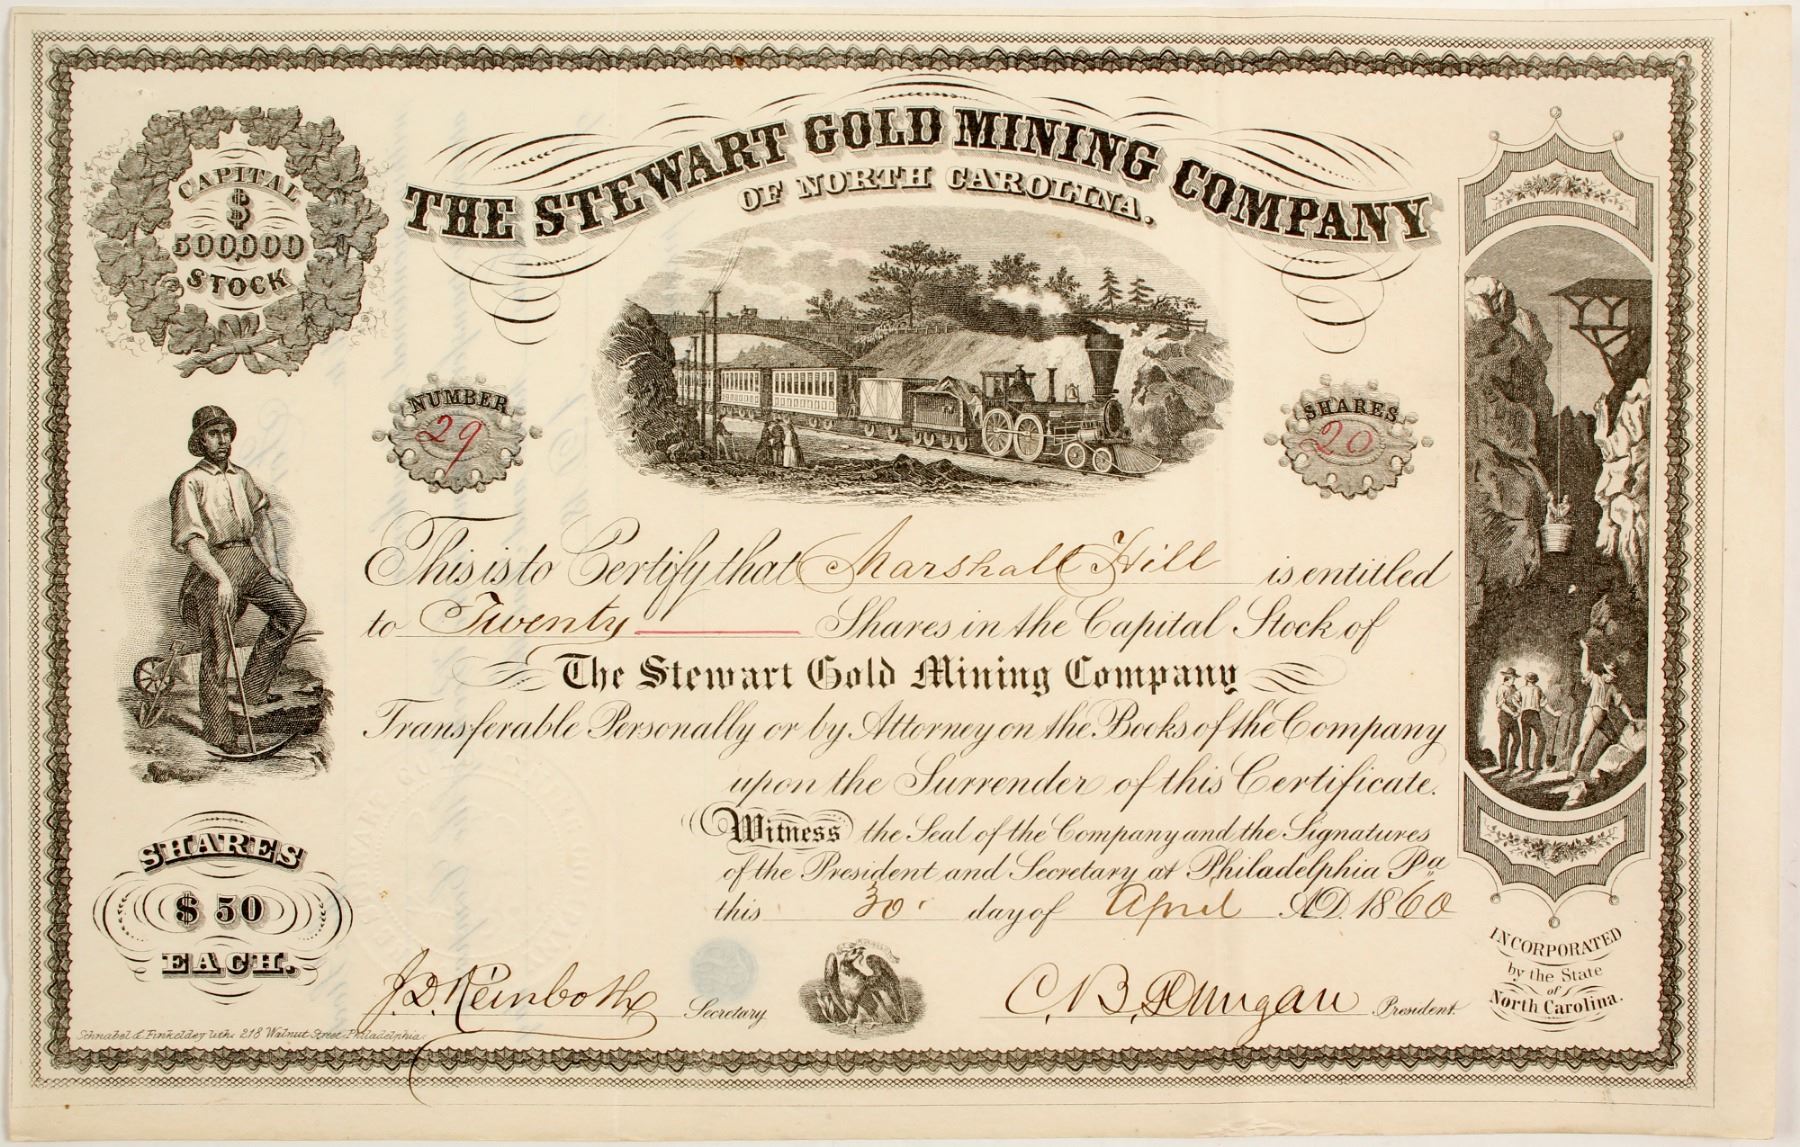 THE STEWART GOLD MINING COMPANY
OF NORTH CAROLINA.
CAPITAL
$
500,000
STOCK
NUMBER
29
SHARES
20
This is to Certify that Marshall Hill is entitled
to Twenty Shares in the Capital Stock of
The Stewart Gold Mining Company
Transferable Personally or by Attorney on the Books of the Company
upon the Surrender of this Certificate.
Witness the Seal of the Company and the Signatures
of the President and Secretary at Philadelphia Pa
this 30 day of April A.D. 1860
SHARES
$ 50
EACH.
J. D. Reinboth Secretary
C. B. Dungan President
INCORPORATED
by the State
of
North Carolina.
Schnabel & Finkeldey lith. 218 Walnut Street Philadelphia